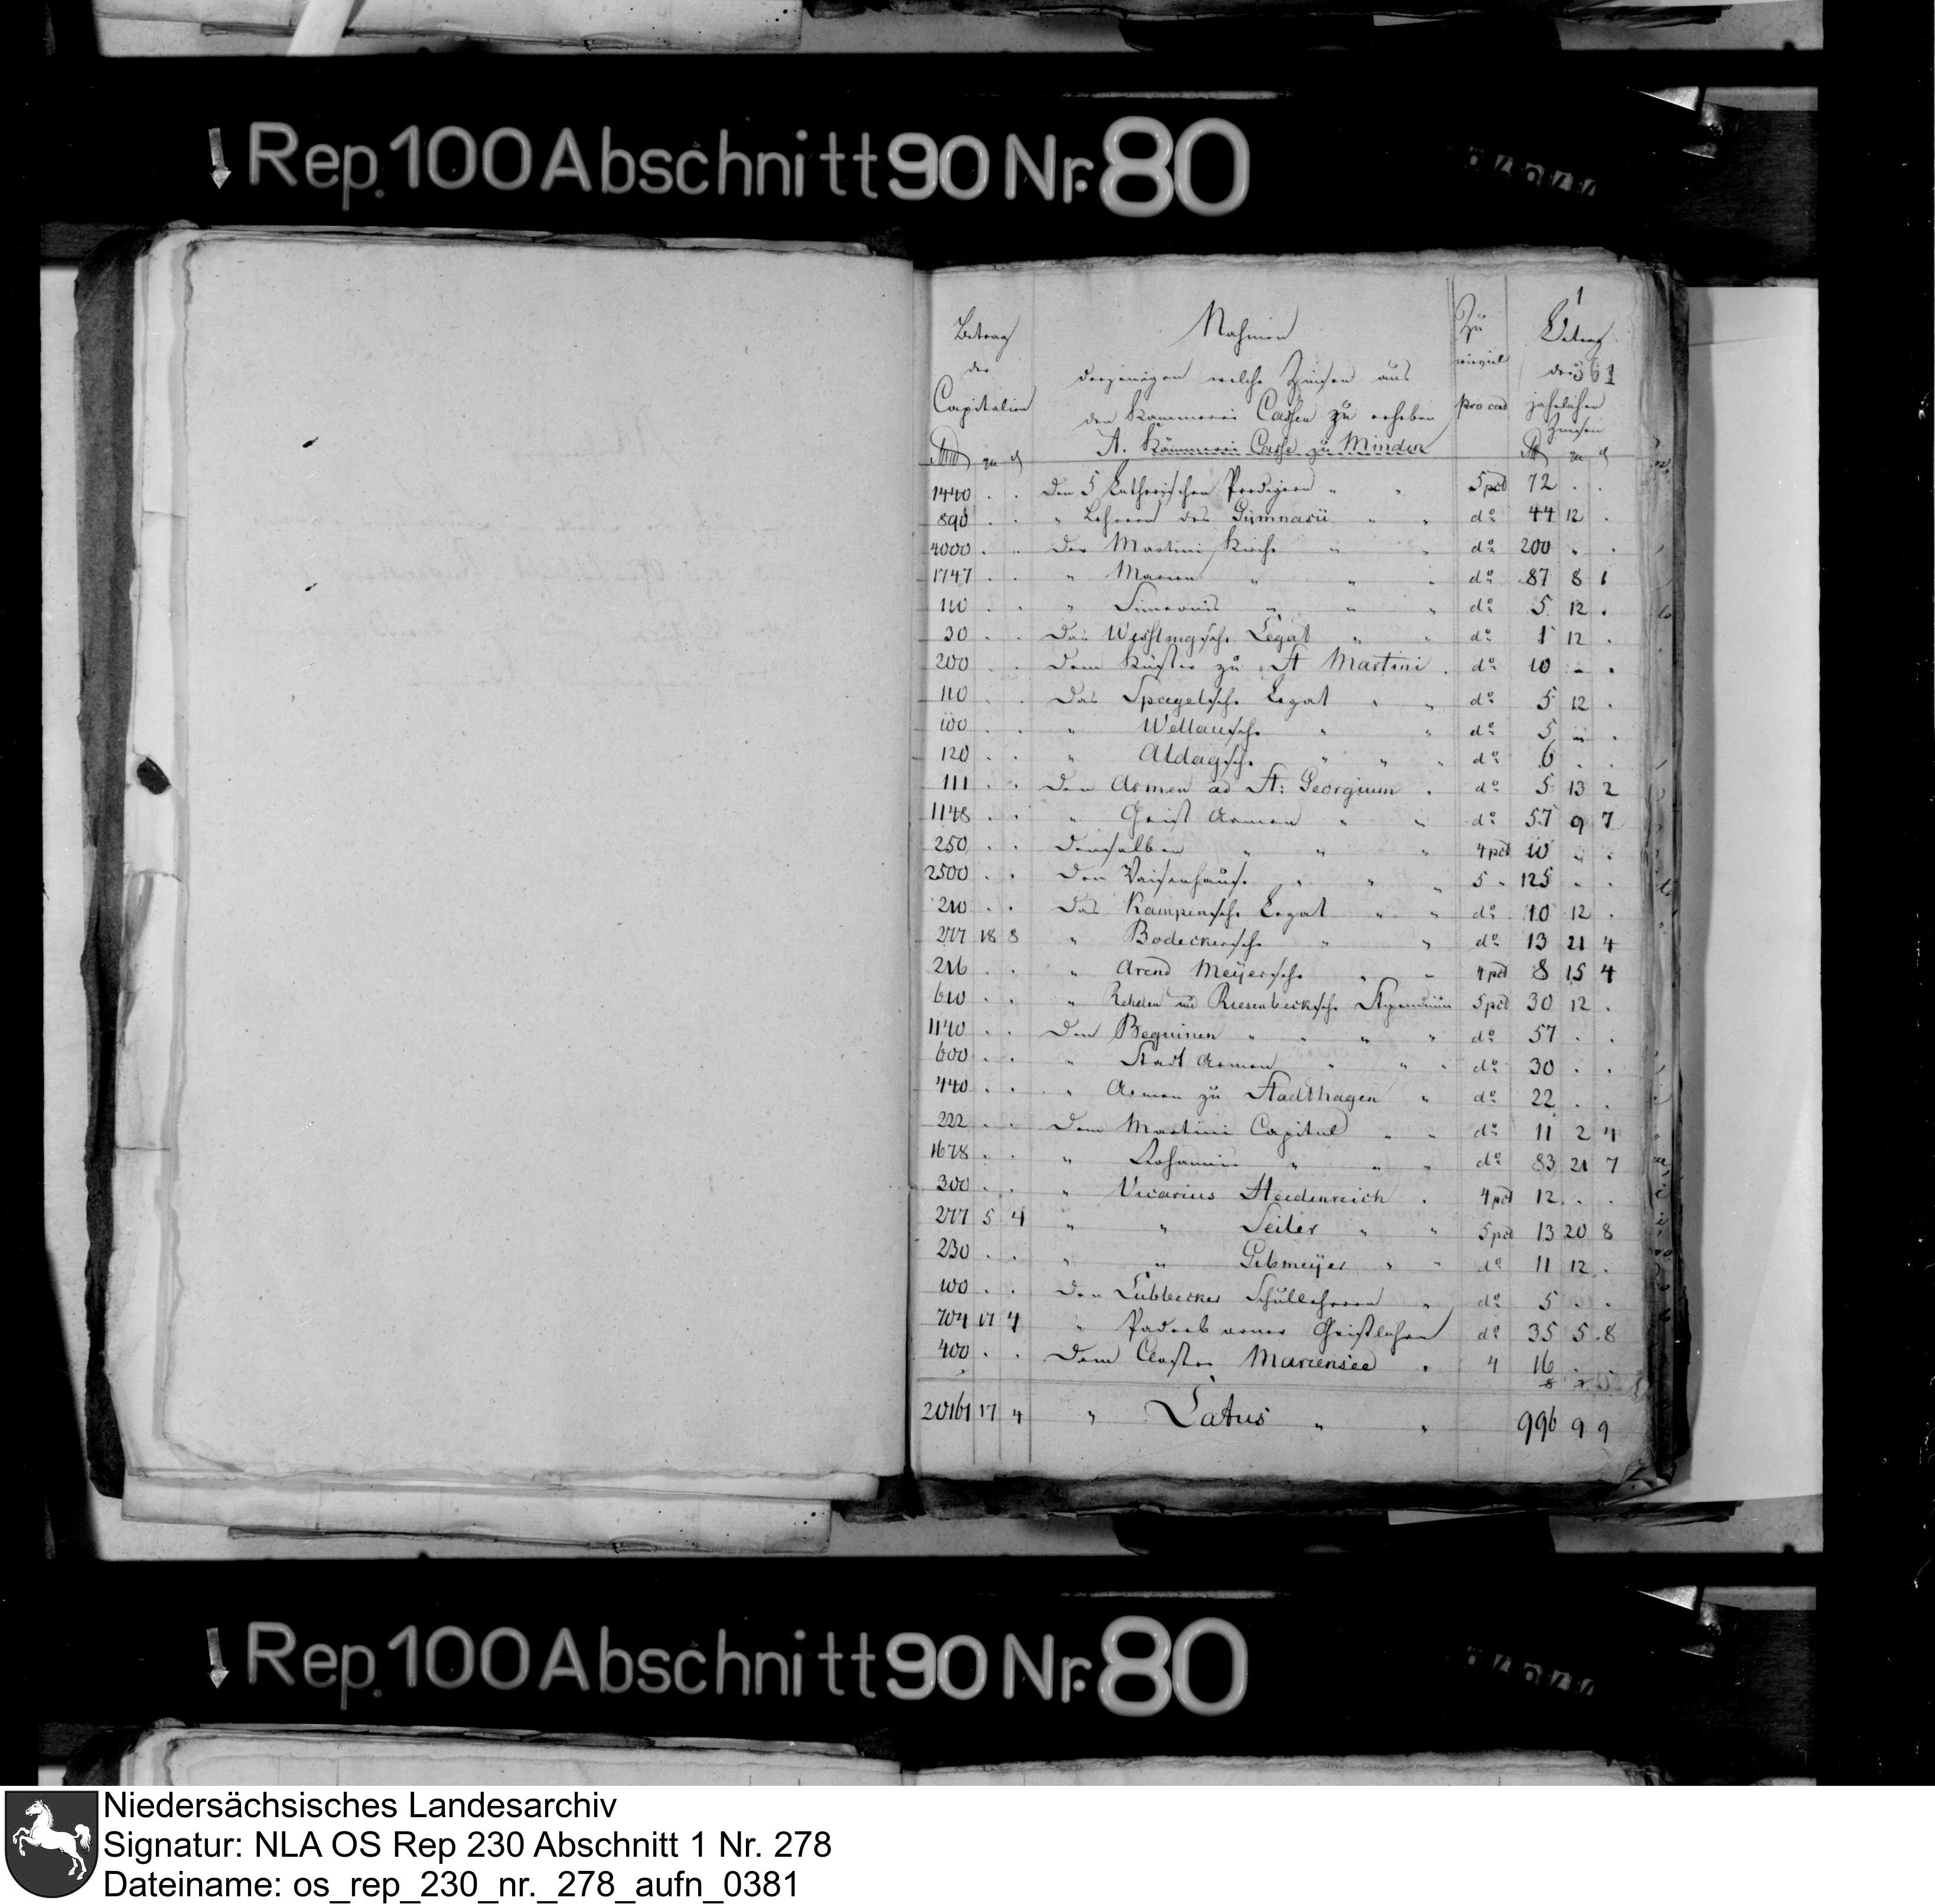 Rep. 100 Abschnitt 90 Nr. 80
1
Betrag Nahmen Zu Betrag
der derjenigen welche Zinsen aus wieviel der 561
Capitalien den Kämmerei Cassen zu erheben pro cent jährlichen
A. Kämmerei Casse zu Minden Zinsen
1440 . . Den 5 Lutherischen Predigern " " 5 pct 72 . .
890 . . " Lehrern des Gümnasii " " do 44 12 .
4000 . . Der Martini Kirche " " do 200 " .
1747 . . " Marien " " " do 87 8 1
110 . . " Simeonis " " " do 5 12 .
30 . . Das Legat " " do 1 12 .
200 . . Dem Küster zu St Martini . do 10 - .
110 . . Das Spiegelsche Legat " " do 5 12 .
100 . . " Wellausche " " do 5 " .
120 . . " Aldagsche " " " do 6 . .
111 . . Den Armen ad St: Georgium . do 5 13 2
1148 . . " Geist Armen " " do 57 9 7
250 . . Denselben " " " 4 pct 10 " .
2500 . . Den Waisenhause " " " 5 " 125 " .
210 . . Das Kampensche Legat " " do 10 12 .
277 18 8 " Bodeckersche " " do 13 21 4
216 . . " Arend Meÿersche " " 4 pct 8 15 4
610 . . " Rehden und Riesenbecksche Stipendium 5 pct 30 12 .
1140 . . Den Beguinen " " " " do 57 . .
600 . . " Stadt Armen " " " do 30 . .
440 . . " Armen zu Stadthagen " do 22 . .
222 . . Dem Martini Capitul " " do 11 2 4
1678 . . " Johannis " " " do 83 21 7
300 . . " Vicarius Heidenreich . 4 pct 12 . .
277 5 4 " " Seiler " " 5 pct 13 20 8
230 . . " " Gibmeÿer " " do 11 12 .
100 . . Den Lübbecker Schullehrern " do 5 . .
704 17 4 " Paderborner Geistlichen do 35 5 8
400 . . Dem Closter Mariensee . 4 16 . .
20161 17 4 " Latus " " 996 9 9
Rep. 100 Abschnitt 90 Nr. 80
Niedersächsisches Landesarchiv
Signatur: NLA OS Rep 230 Abschnitt 1 Nr. 278
Dateiname: os_rep_230_nr._278_aufn_0381